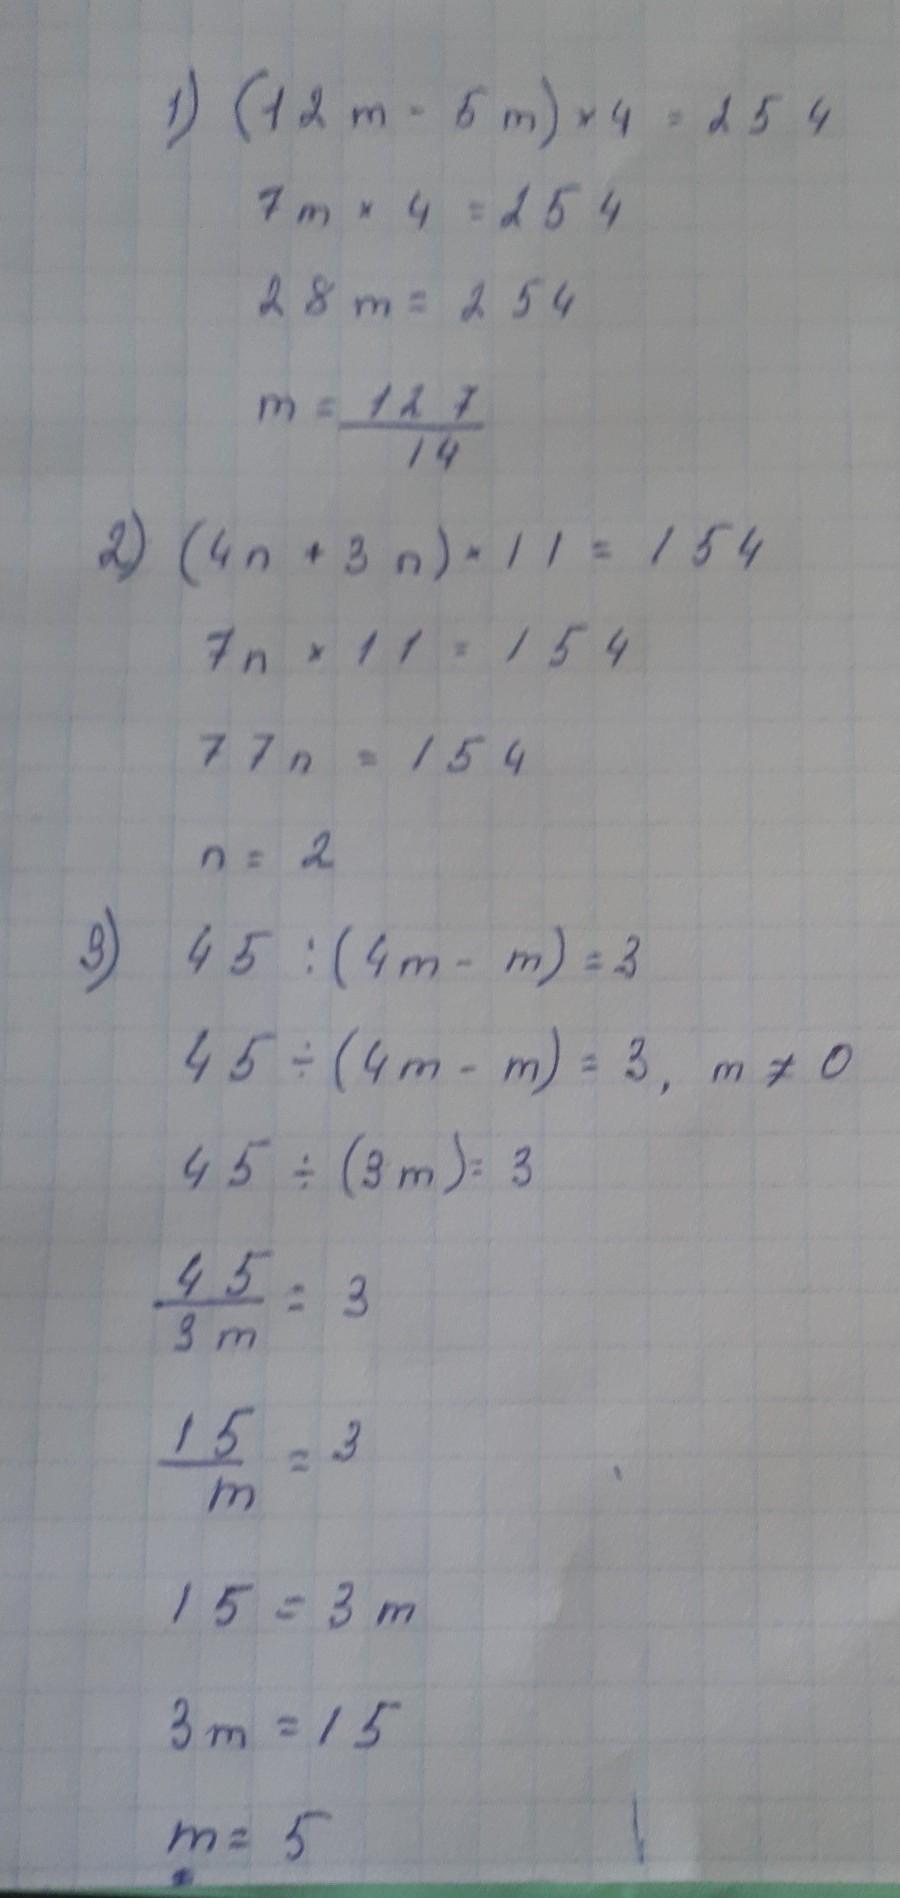 1) (12m - 5m) × 4 = 254
7m × 4 = 254
28m = 254
m = 127/14
2) (4n + 3n) · 11 = 154
7n × 11 = 154
77n = 154
n = 2
3) 45 : (4m - m) = 3
45 ÷ (4m - m) = 3, m ≠ 0
45 ÷ (3m) = 3
45/3m = 3
15/m = 3
15 = 3m
3m = 15
m = 5